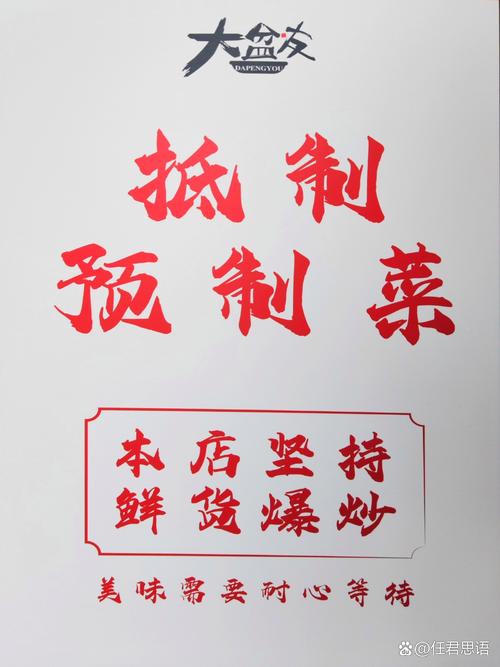 大盆友
DAPENGYOU
抵制
预制菜
本店坚持
鲜货爆炒
美味需要耐心等待
@任君思语